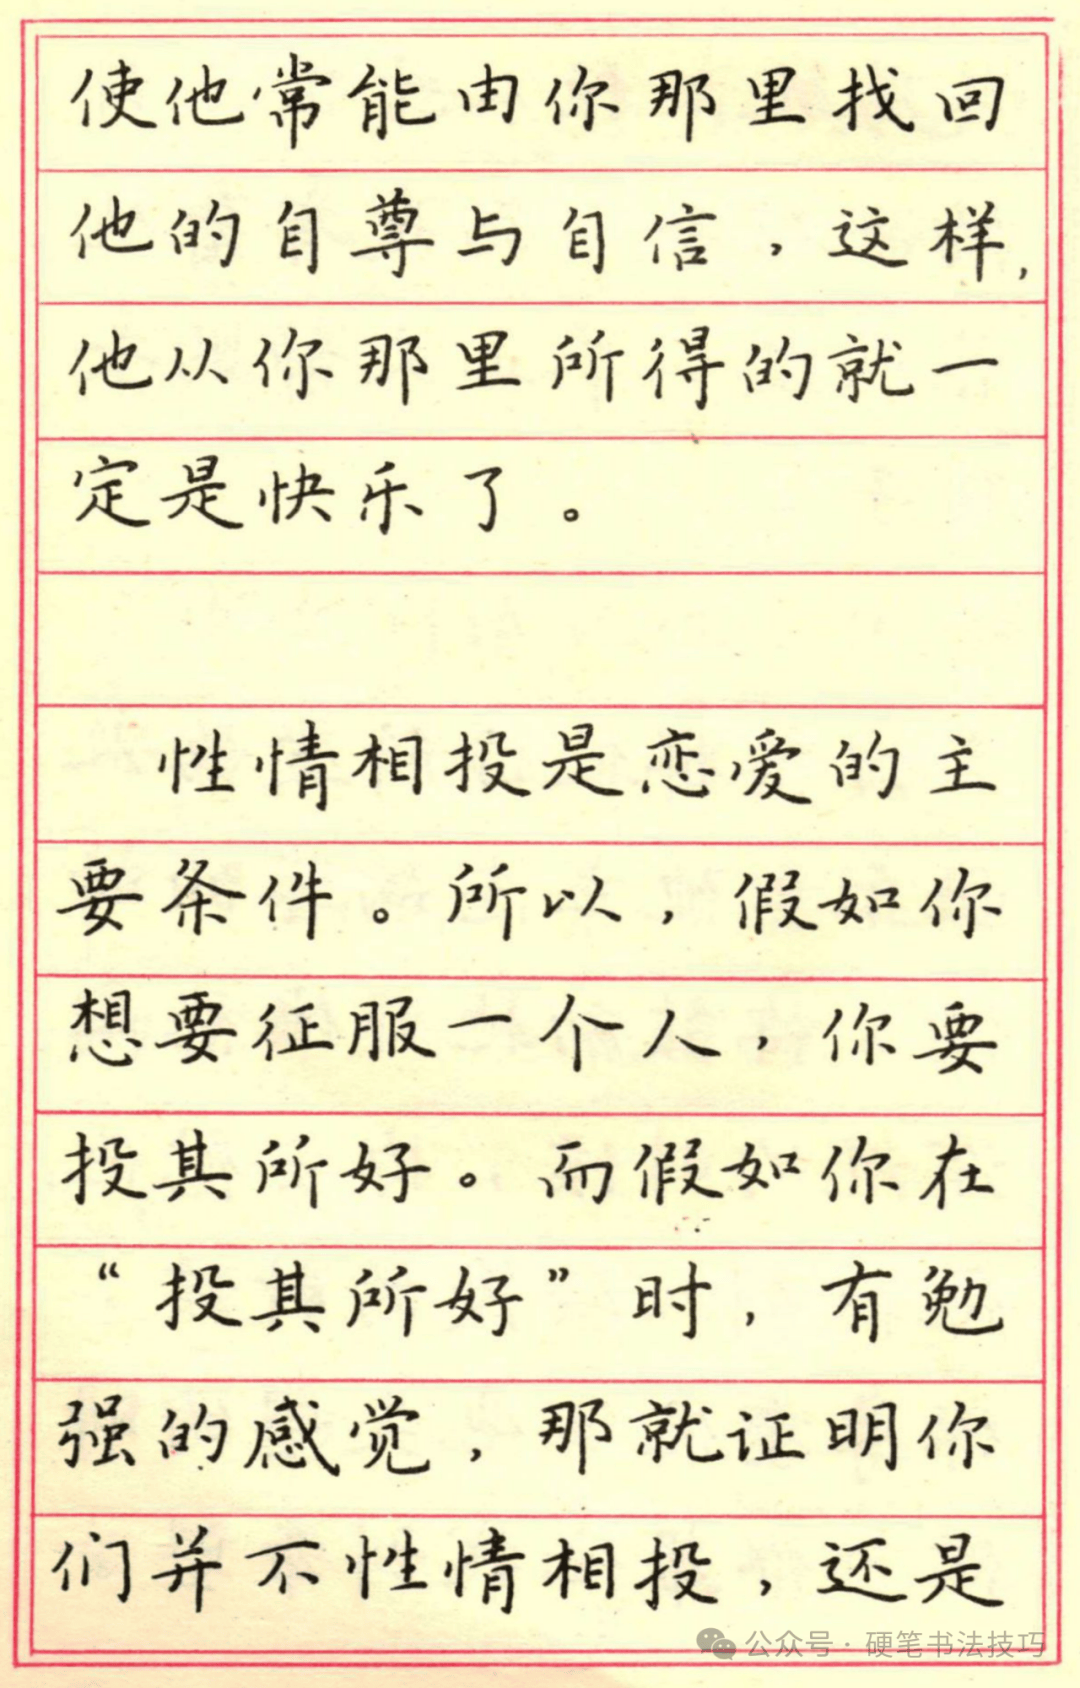 使他常能由你那里找回
他的自尊与自信，这样，
他从你那里所得的就一
定是快乐了。
性情相投是恋爱的主
要条件。所以，假如你
想要征服一个人，你要
投其所好。而假如你在
“投其所好”时，有勉
强的感觉，那就证明你
们并不性情相投，还是
公众号·硬笔书法技巧